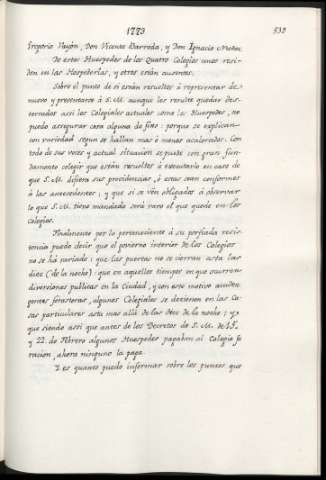 1773
538
Gregorio Vayón, Don Vicente Barreda, y Don Ignacio Muñoz
De estos Huespedes de los Quatro Colegios unos resi-
den en las Hospederías, y otros están ausentes.
Sobre el punto de si están resueltos á representar de-
nuevo y presentarse á S.M. aunque les resulte quedar des-
terrados assi los Colegiales actuales como los Huespedes, no
puedo assegurar cosa alguna de fixo: porque se explican-
con variedad segun se hallan mas ó menos acalorados. Con
todo de sus voces y actual situacion se puede con gran fun-
damento colegir que están resueltos á executarlo en caso de
que S.M. difiera sus providencias, ó estas sean conformes
á las antecedentes; y que si se vén obligados á observar
lo que S.M. tiene mandado será raro el que quede en los
Colegios.
Finalmente por lo perteneciente á su porfiada resis-
tencia puedo decir que el govierno interior de los Colegios
no se há variado: que las puertas no se cierran asta las
diez (de la noche): que en aquellos tiempos en que ocurren
diversiones publicas en la Ciudad, y con este motivo acuden
gentes forasteras, algunos Colegiales se detienen en las Ca-
sas particulares asta mas allá de las doce de la noche; y
que siendo assi que antes de los Decretos de S.M. de 15.
y 22. de Febrero algunos Huespedes pagaban al Colegio su
racion, ahora ninguno la paga.
Y es quanto puedo informar sobre los puntos que